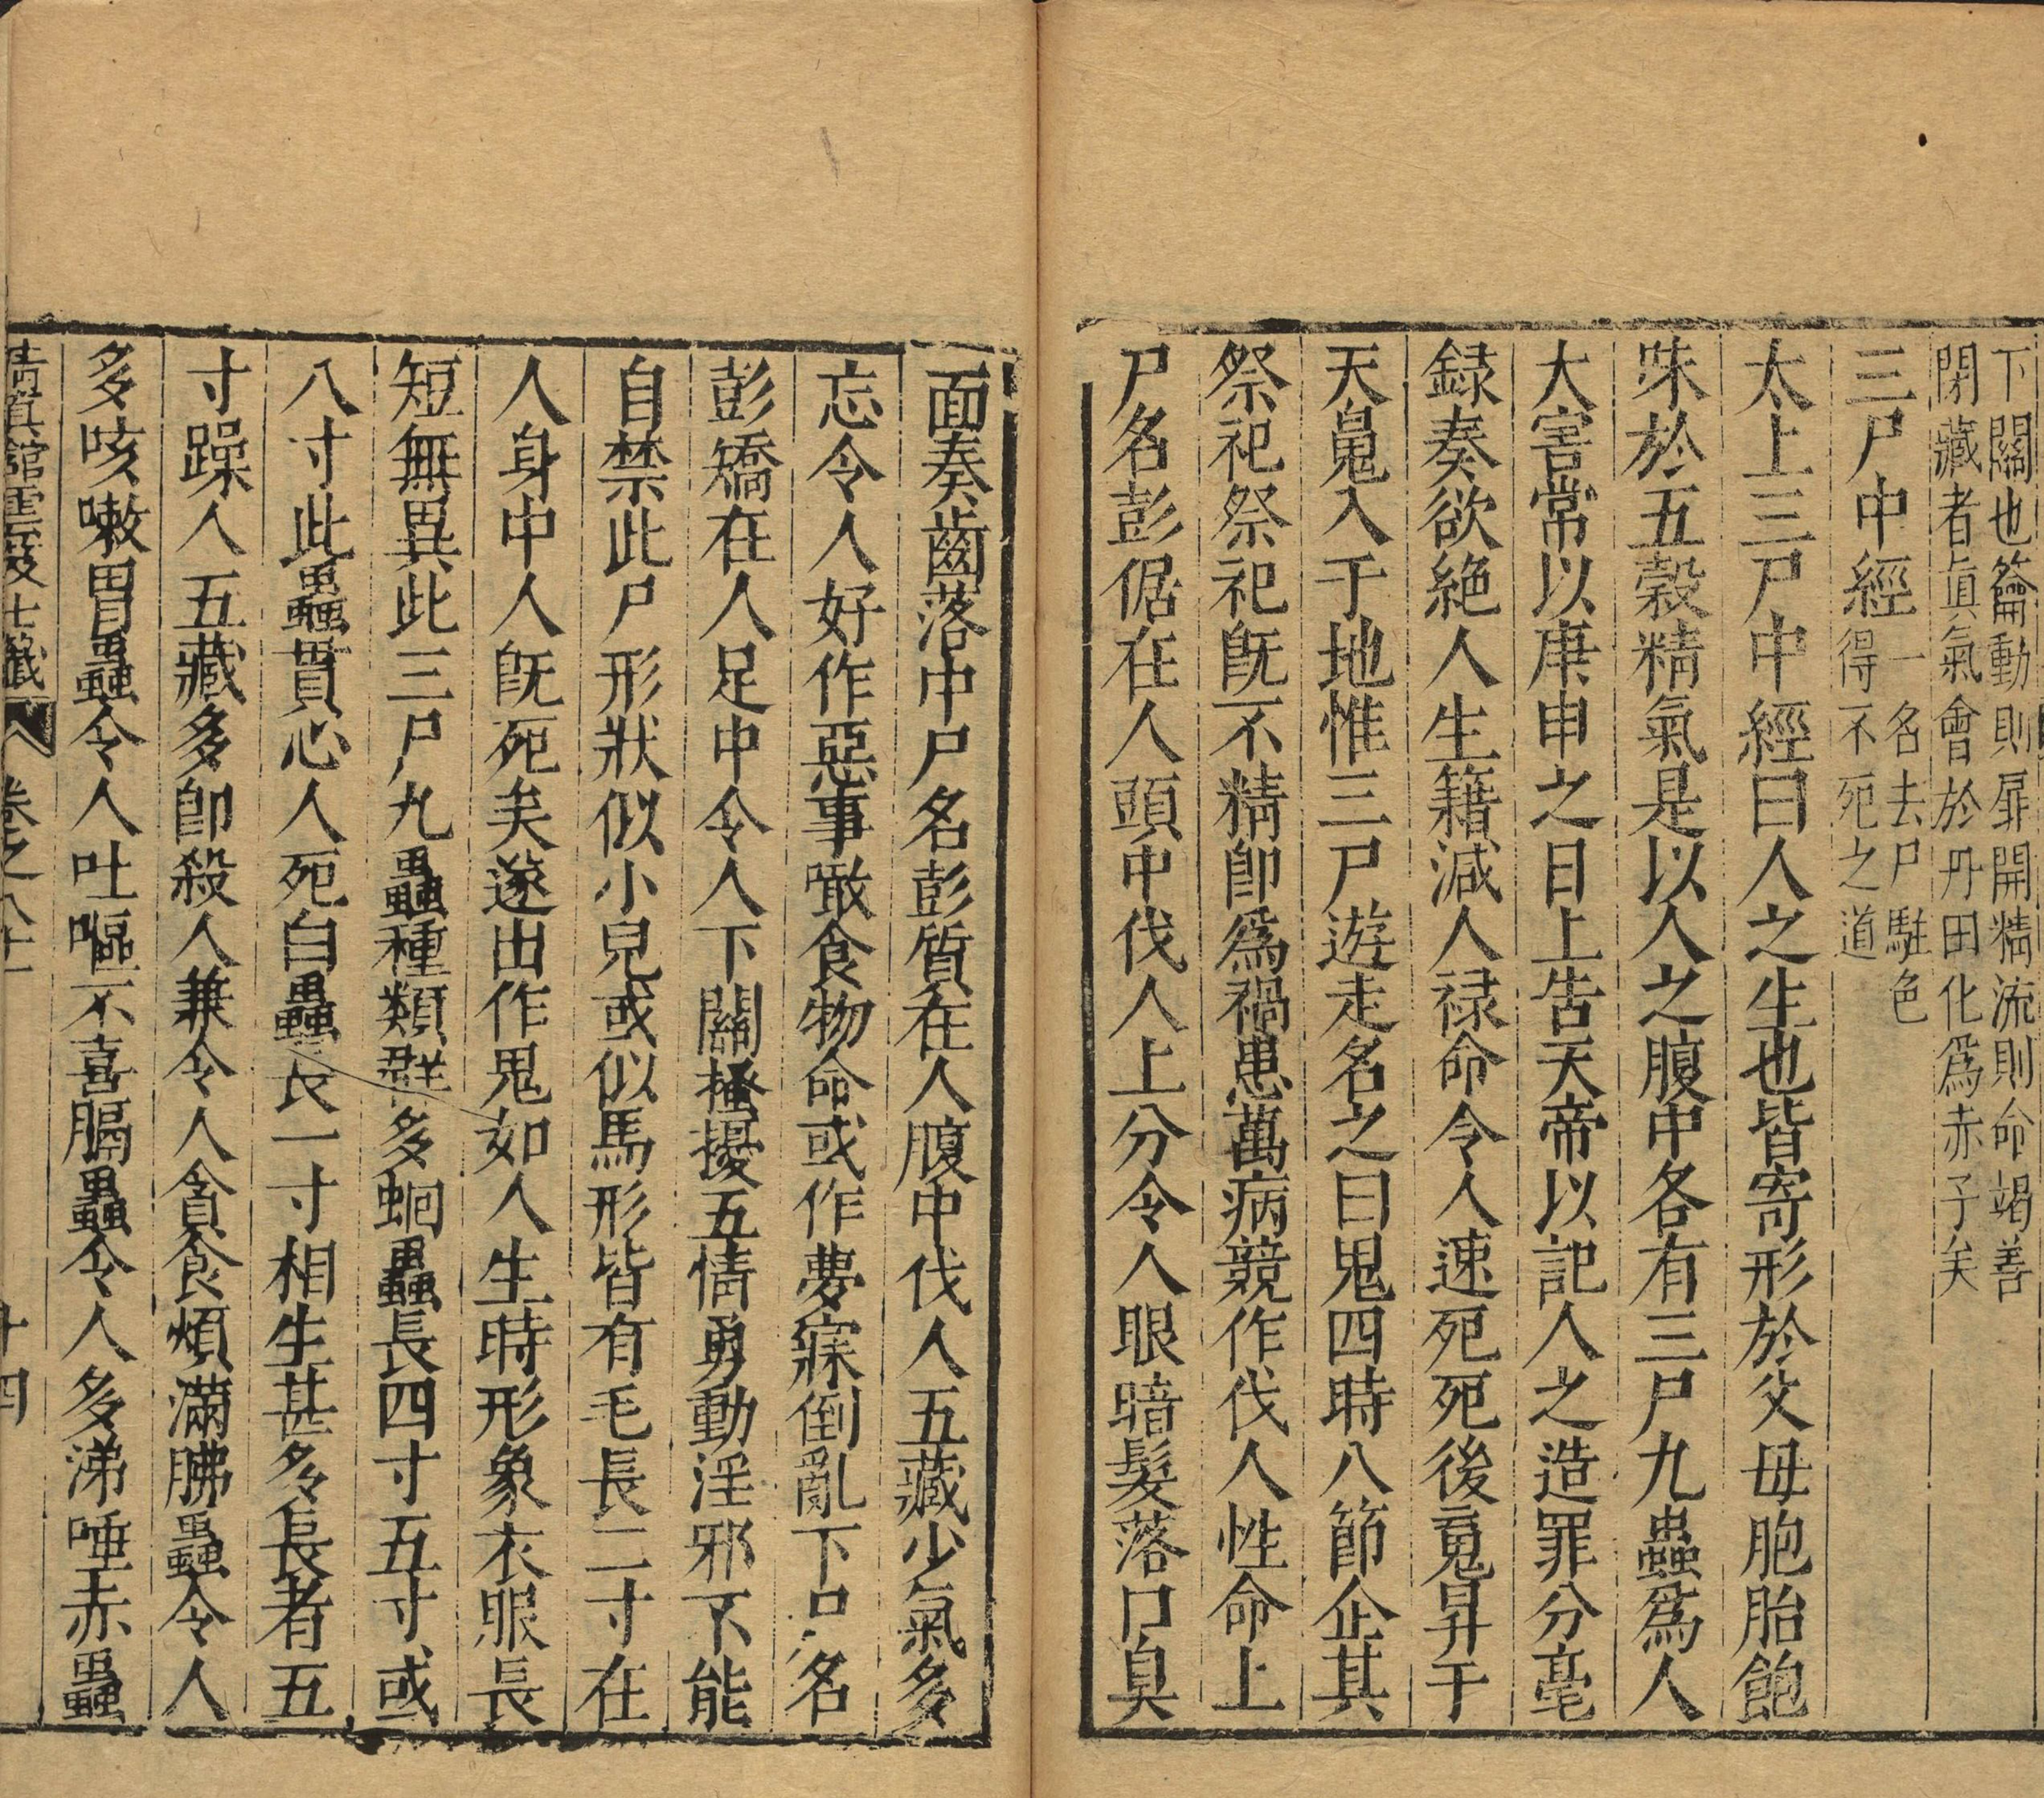 下關也籥動則扉開精流則命竭善
閉藏者眞氣會於丹田化爲赤子矣
三尸中經一名去尸駐色得不死之道
太上三尸中經曰人之生也皆寄形於父母胞胎飽
味於五穀精氣是以人之腹中各有三尸九蟲爲人
大害常以庚申之日上告天帝以記人之造罪分毫
録奏欲絶人生籍減人禄命令人速死死後魂昇于
天䰟入于地惟三尸遊走名之曰鬼四時八節企其
祭祀祭祀旣不精卽爲禍患萬病競作伐人性命上
尸名彭倨在人頭中伐人上分令人眼暗髮落口臭
面奏齒落中尸名彭質在人腹中伐人五藏少氣多
忘令人好作惡事噉食物命或作夢寐倒亂下尸名
彭矯在人足中令人下關搔擾五情勇動淫邪不能
自禁此尸形狀似小兒或似馬形皆有毛長二寸在
人身中人旣死矣遂出作鬼如人生時形象衣服長
短無異此三尸九蟲種類群多蛔蟲長四寸五寸或
八寸此蟲貫心人死白蟲長一寸相生甚多長者五
寸躁人五藏多卽殺人兼令人貪食煩滿胇蟲令人
多咳嗽胃蟲令人吐嘔不喜膈蟲令人多涕唾赤蟲
清眞館雲笈七籤 卷之八十 十四